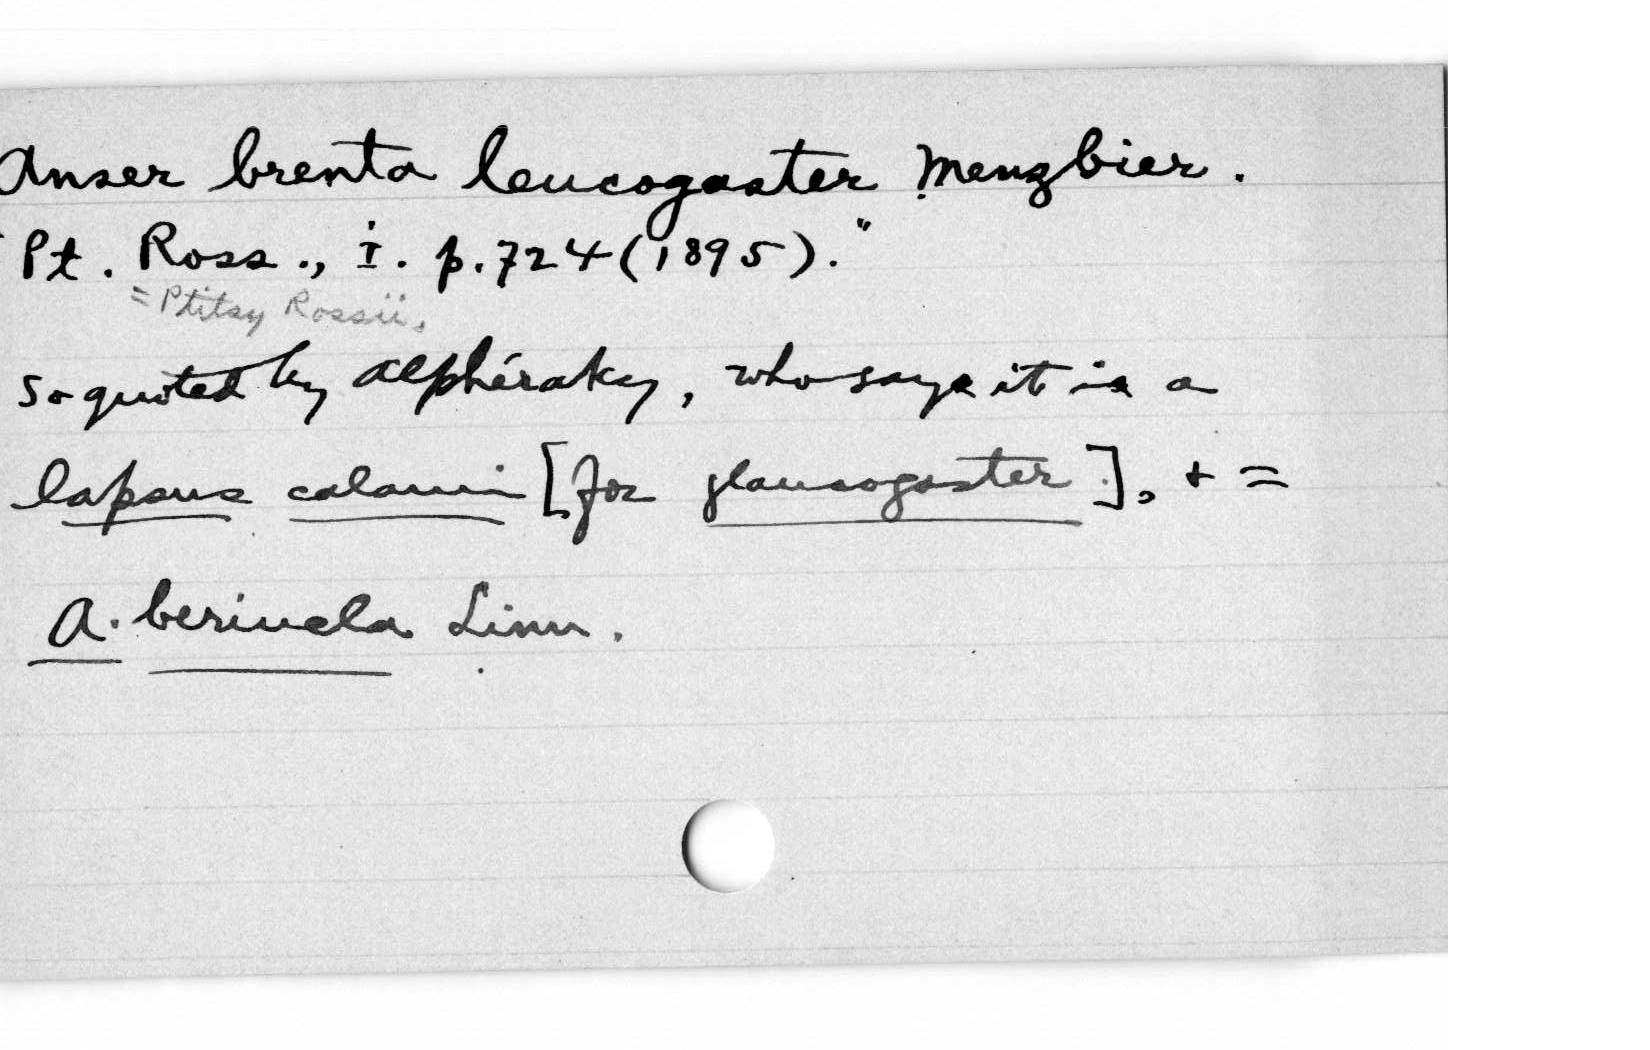 Anser brenta leucogaster Menzbier.
"Pt. Ross., I. p.724 (1895)."
= Ptitsy Rossii.
so quoted by Alphéraky, who says it is a
lapsus calami [for glaucogaster], + =
A. bernicla Linn.